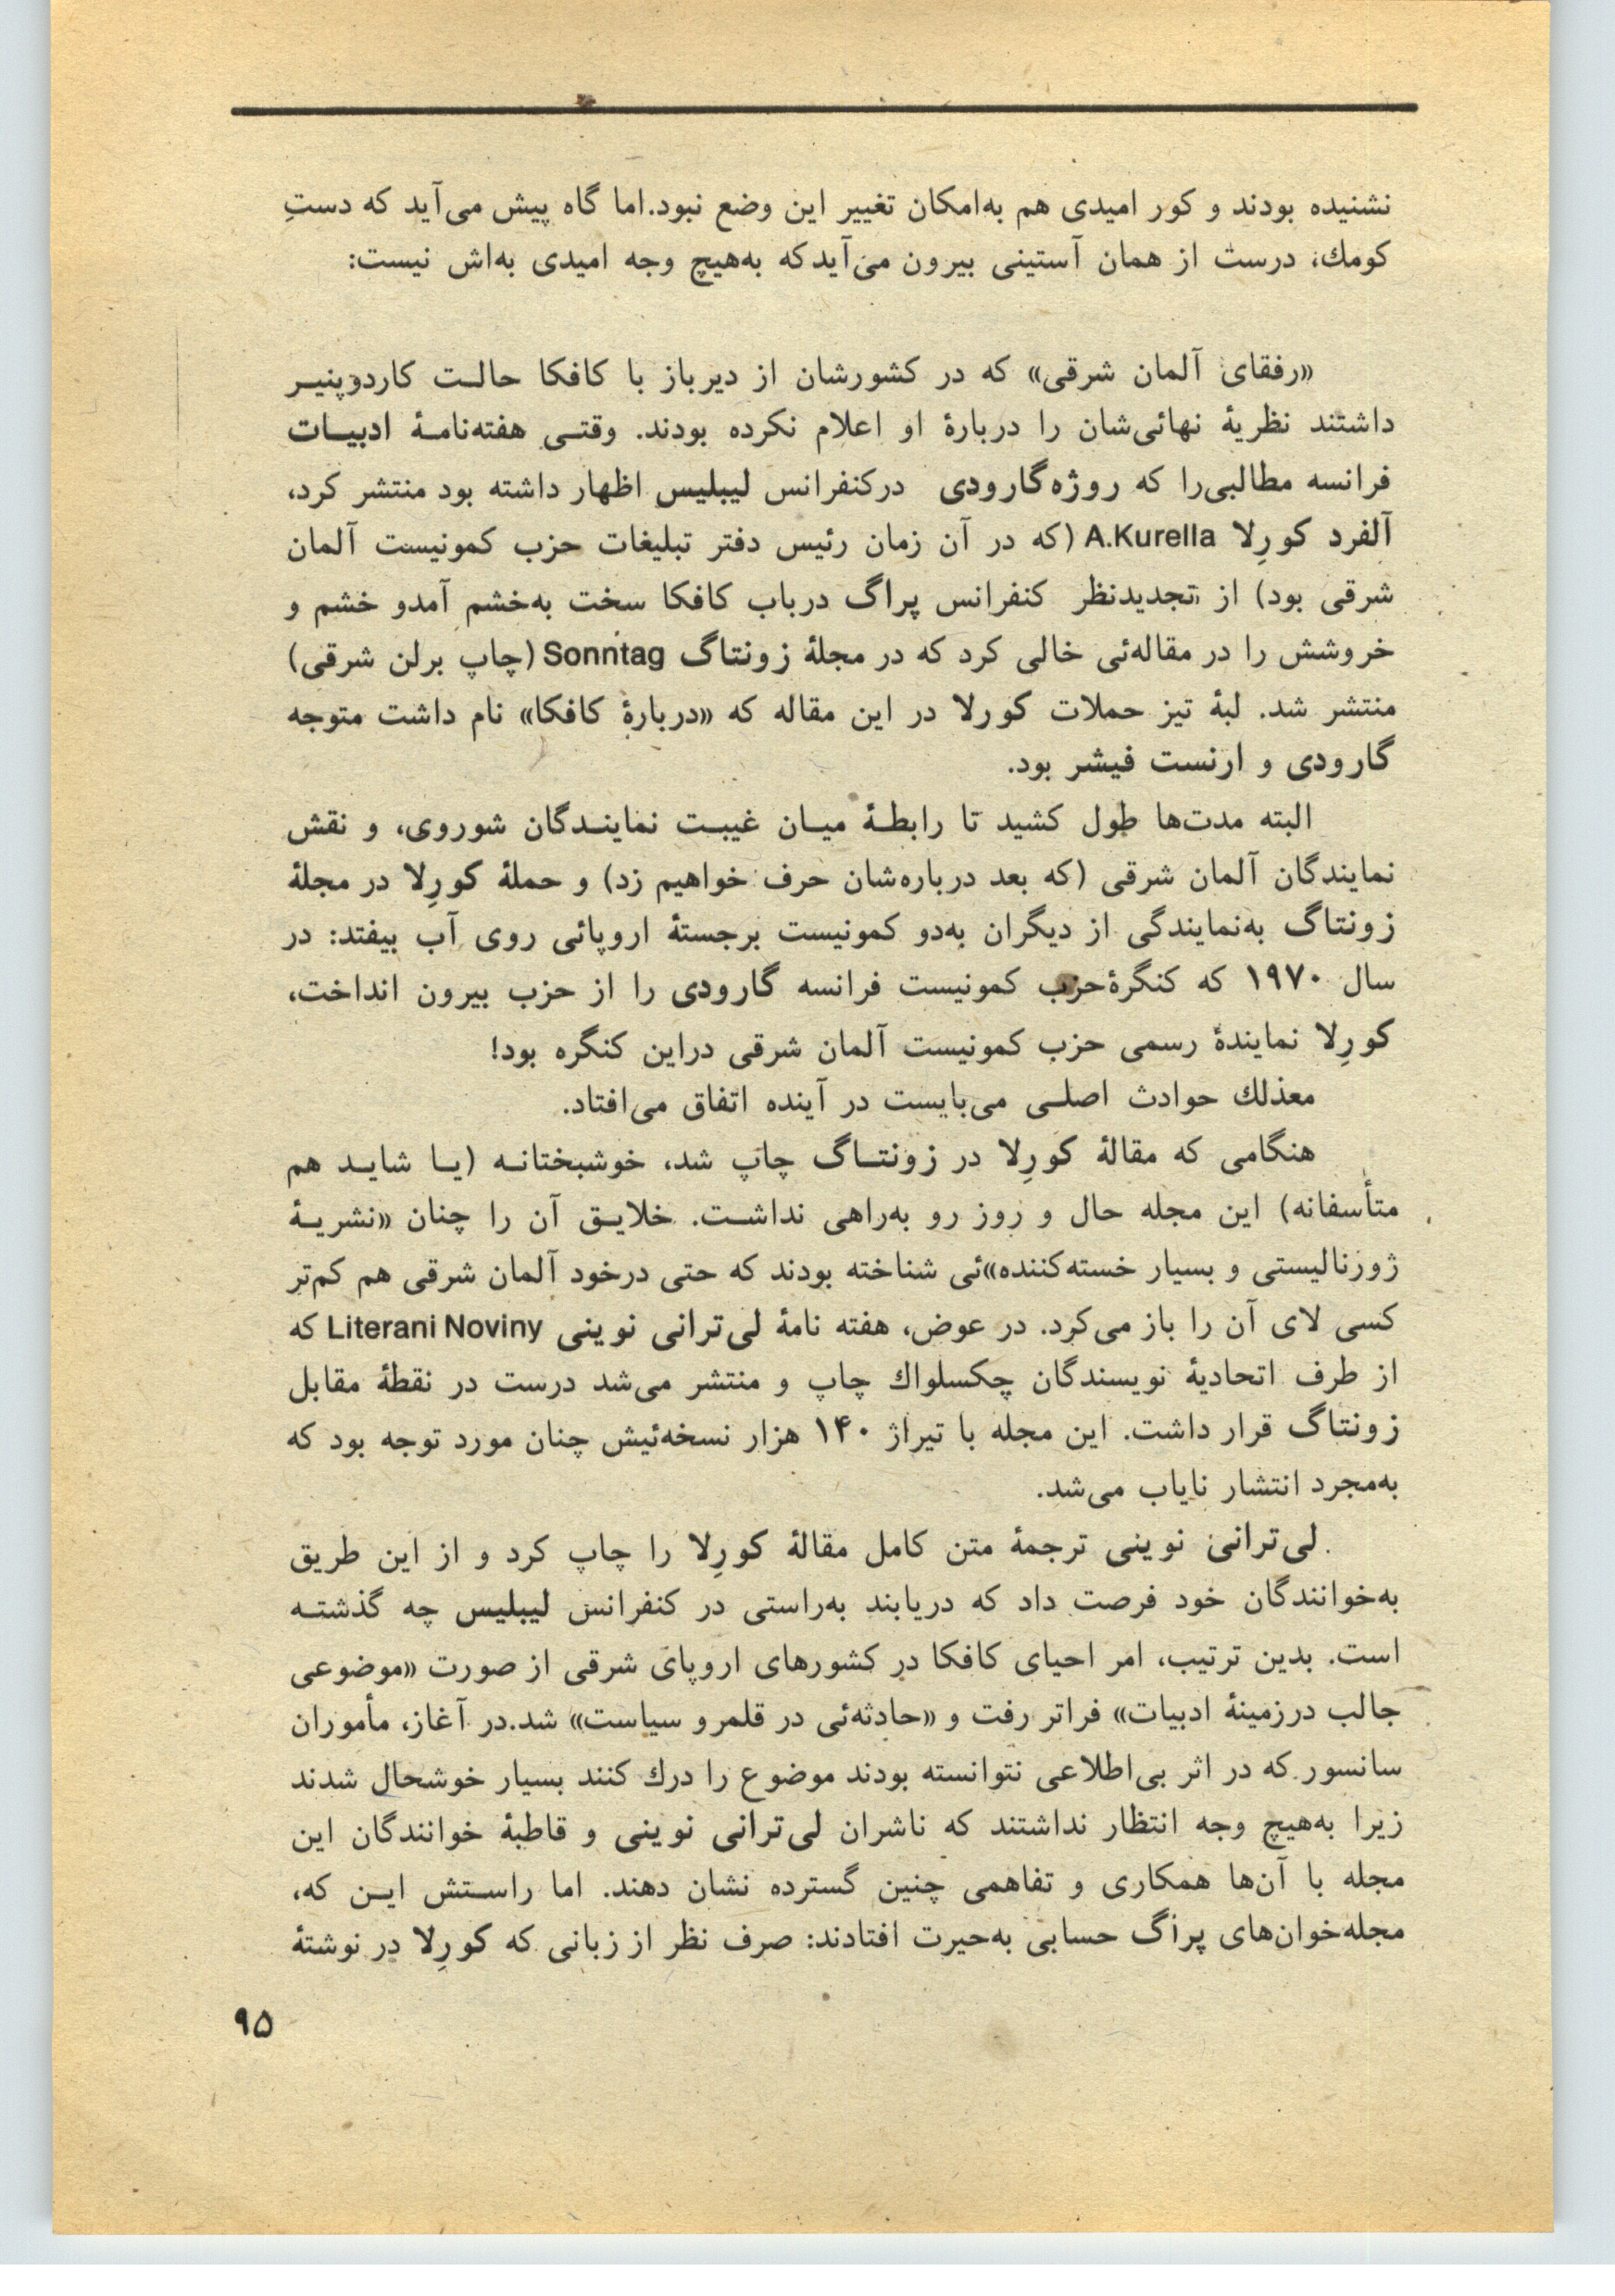 نشنیده بودند و کور امیدی هم به‌امکان تغییر این وضع نبود.اما گاه پیش می‌آید که دستِ
کومك، درست از همان آستینی بیرون می‌آیدکه به‌هیچ وجه امیدی به‌اش نیست:
«رفقای آلمان شرقی» که در کشورشان از دیرباز با کافکا حالـت کاردوپنیـر
داشتند نظریهٔ نهائی‌شان را دربارهٔ او اعلام نکرده بودند. وقتـی هفته‌نامـهٔ ادبیـات
فرانسه مطالبی‌را که روژه‌گارودی درکنفرانس لیبلیس اظهار داشته بود منتشر کرد،
آلفرد کورِلا A.Kurella (که در آن زمان رئیس دفتر تبلیغات حزب کمونیست آلمان
شرقی بود) از تجدیدنظر کنفرانس پراگ درباب کافکا سخت به‌خشم آمدو خشم و
خروشش را در مقاله‌ئی خالی کرد که در مجلهٔ زونتاگ Sonntag (چاپ برلن شرقی)
منتشر شد. لبهٔ تیز حملات کورلا در این مقاله که «دربارهٔ کافکا» نام داشت متوجه
گارودی و ارنست فیشر بود.
البته مدت‌ها طول کشید تا رابطـهٔ میـان غیبـت نماینـدگان شوروی، و نقش
نمایندگان آلمان شرقی (که بعد درباره‌شان حرف خواهیم زد) و حملهٔ کورِلا در مجلهٔ
زونتاگ به‌نمایندگی از دیگران به‌دو کمونیست برجستهٔ اروپائی روی آب بیفتد: در
سال ۱۹۷۰ که کنگرهٔحزب کمونیست فرانسه گارودی را از حزب بیرون انداخت،
کورِلا نمایندهٔ رسمی حزب کمونیست آلمان شرقی دراین کنگره بود!
معذلك حوادث اصلـی می‌بایست در آینده اتفاق می‌افتاد.
هنگامی که مقالهٔ کورِلا در زونتـاگ چاپ شد، خوشبختانـه (یـا شایـد هم
متأسفانه) این مجله حال و روز رو به‌راهی نداشـت. خلایـق آن را چنان «نشریـهٔ
ژورنالیستی و بسیار خسته‌کننده»ئی شناخته بودند که حتی درخود آلمان شرقی هم کم‌تر
کسی لای آن را باز می‌کرد. در عوض، هفته نامهٔ لی‌ترانی نوینی Literani Noviny که
از طرف اتحادیهٔ نویسندگان چکسلواك چاپ و منتشر می‌شد درست در نقطهٔ مقابل
زونتاگ قرار داشت. این مجله با تیراژ ۱۴۰ هزار نسخه‌ئیش چنان مورد توجه بود که
به‌مجرد انتشار نایاب می‌شد.
لی‌ترانی نوینی ترجمهٔ متن کامل مقالهٔ کورِلا را چاپ کرد و از این طریق
به‌خوانندگان خود فرصت داد که دریابند به‌راستی در کنفرانس لیبلیس چه گذشتـه
است. بدین ترتیب، امر احیای کافکا در کشورهای اروپای شرقی از صورت «موضوعی
جالب درزمینهٔ ادبیات» فراتر رفت و «حادثه‌ئی در قلمرو سیاست» شد.در آغاز، مأموران
سانسور که در اثر بی‌اطلاعی نتوانسته بودند موضوع را درك کنند بسیار خوشحال شدند
زیرا به‌هیچ وجه انتظار نداشتند که ناشران لی‌ترانی نوینی و قاطبهٔ خوانندگان این
مجله با آن‌ها همکاری و تفاهمی چنین گسترده نشان دهند. اما راسـتش ایـن که،
مجله‌خوان‌های پراگ حسابی به‌حیرت افتادند: صرف نظر از زبانی که کورِلا در نوشتهٔ
۹۵